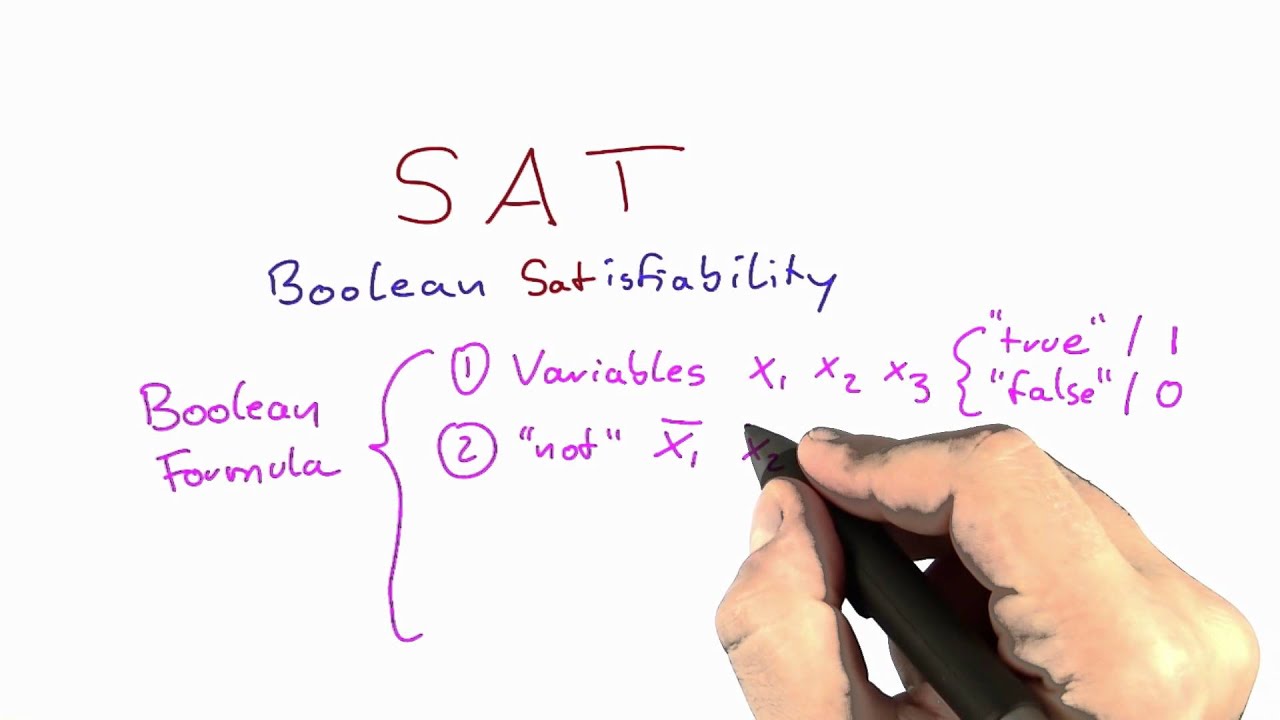 SAT
Boolean Satisfiability
Boolean Formula
① Variables x₁ x₂ x₃ "true" / 1 "false" / 0
② "not" x̅₁ x₂